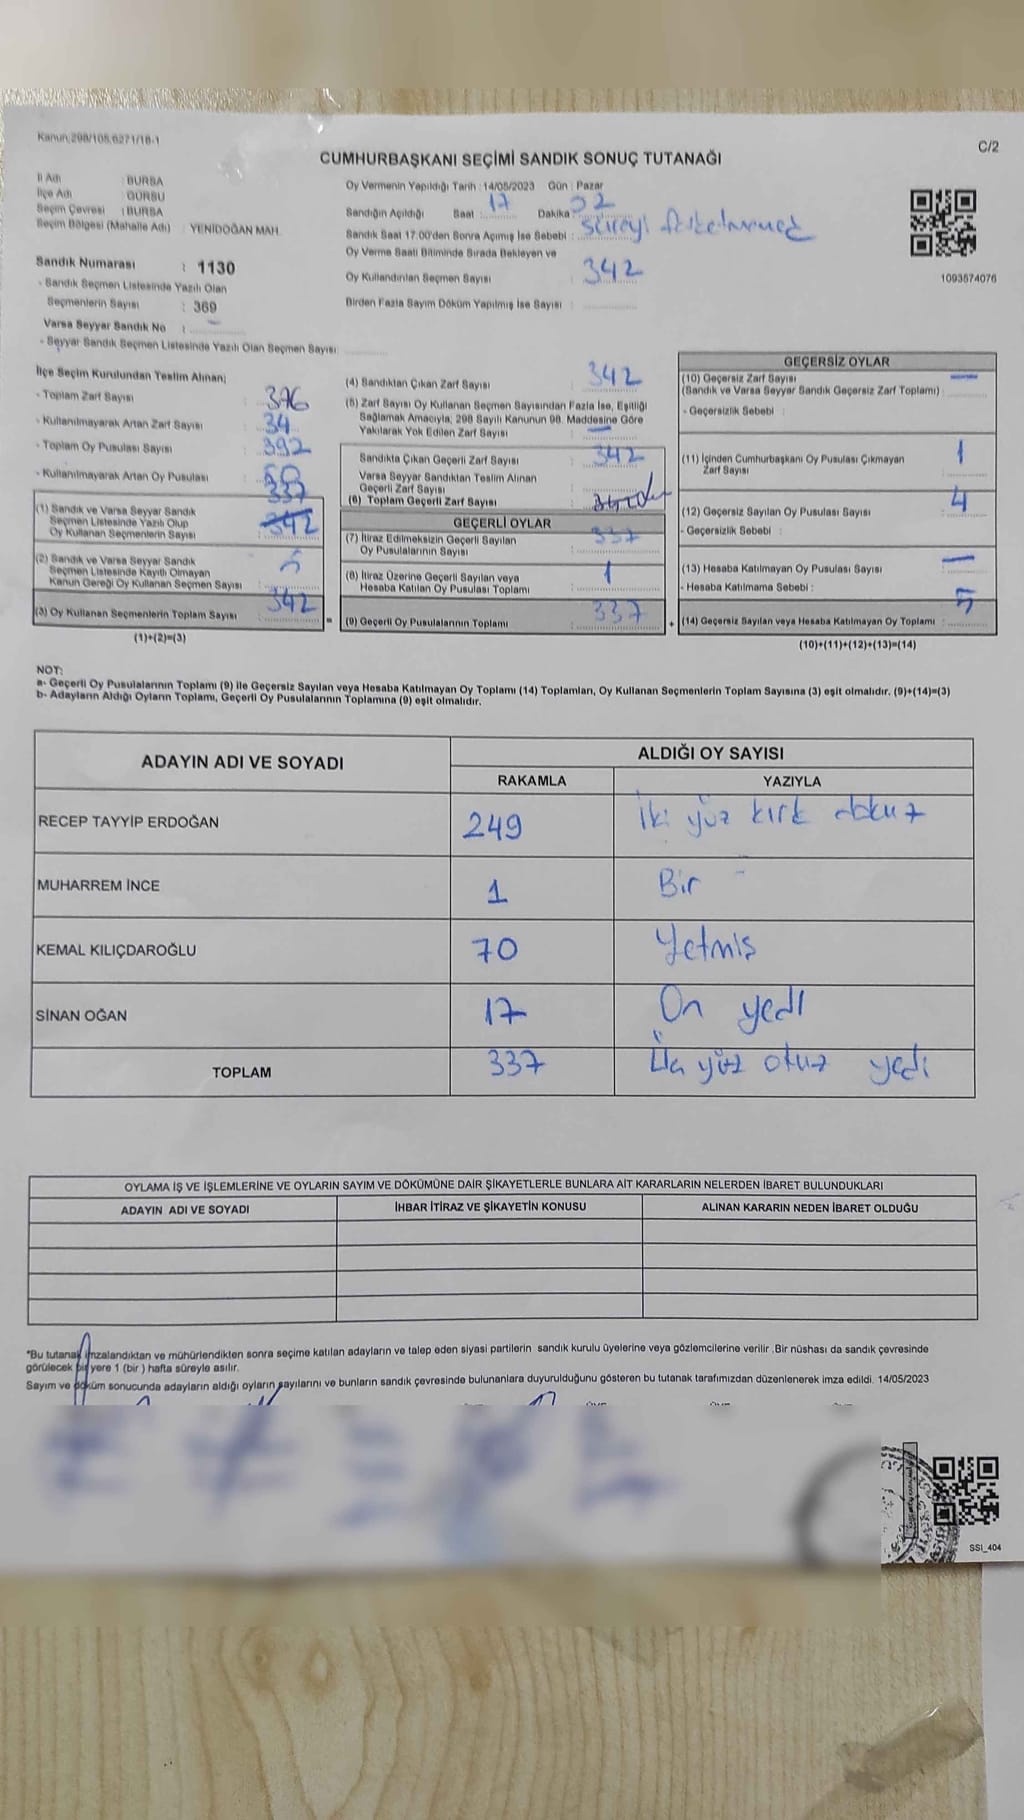 Kanun:298/105,6271/18-1
C/2
CUMHURBAŞKANI SEÇİMİ SANDIK SONUÇ TUTANAĞI
İl Adı : BURSA
İlçe Adı : GÜRSU
Seçim Çevresi : BURSA
Seçim Bölgesi (Mahalle Adı) : YENİDOĞAN MAH.
Sandık Numarası : 1130
- Sandık Seçmen Listesinde Yazılı Olan
Seçmenlerin Sayısı : 369
Varsa Seyyar Sandık No : –
- Seyyar Sandık Seçmen Listesinde Yazılı Olan Seçmen Sayısı:
Oy Vermenin Yapıldığı Tarih : 14/05/2023 Gün : Pazar
Sandığın Açıldığı Saat : 17 Dakika :
Sandık Saat 17:00'den Sonra Açılmış İse Sebebi :
Oy Verme Saati Bitiminde Sırada Bekleyen ve
Oy Kullandırılan Seçmen Sayısı : 342
Birden Fazla Sayım Döküm Yapılmış İse Sayısı :
1093574076
İlçe Seçim Kurulundan Teslim Alınan;
- Toplam Zarf Sayısı : 376
- Kullanılmayarak Artan Zarf Sayısı : 34
- Toplam Oy Pusulası Sayısı : 392
- Kullanılmayarak Artan Oy Pusulası : 50
337
(1) Sandık ve Varsa Seyyar Sandık
Seçmen Listesinde Yazılı Olup
Oy Kullanan Seçmenlerin Sayısı : 342
(2) Sandık ve Varsa Seyyar Sandık
Seçmen Listesinde Kayıtlı Olmayan
Kanun Gereği Oy Kullanan Seçmen Sayısı : 5
(3) Oy Kullanan Seçmenlerin Toplam Sayısı : 342
(1)+(2)=(3)
(4) Sandıktan Çıkan Zarf Sayısı : 342
(5) Zarf Sayısı Oy Kullanan Seçmen Sayısından Fazla İse, Eşitliği
Sağlamak Amacıyla; 298 Sayılı Kanunun 98. Maddesine Göre
Yakılarak Yok Edilen Zarf Sayısı : –
Sandıkta Çıkan Geçerli Zarf Sayısı : 342
Varsa Seyyar Sandıktan Teslim Alınan
Geçerli Zarf Sayısı :
(6) Toplam Geçerli Zarf Sayısı :
GEÇERLİ OYLAR
(7) İtiraz Edilmeksizin Geçerli Sayılan
Oy Pusulalarının Sayısı : 337
(8) İtiraz Üzerine Geçerli Sayılan veya
Hesaba Katılan Oy Pusulası Toplamı : 1
(9) Geçerli Oy Pusulalarının Toplamı : 337
GEÇERSİZ OYLAR
(10) Geçersiz Zarf Sayısı
(Sandık ve Varsa Seyyar Sandık Geçersiz Zarf Toplamı) : –
- Geçersizlik Sebebi :
(11) İçinden Cumhurbaşkanı Oy Pusulası Çıkmayan
Zarf Sayısı : 1
(12) Geçersiz Sayılan Oy Pusulası Sayısı : 4
- Geçersizlik Sebebi :
(13) Hesaba Katılmayan Oy Pusulası Sayısı : –
- Hesaba Katılmama Sebebi :
(14) Geçersiz Sayılan veya Hesaba Katılmayan Oy Toplamı : 5
(10)+(11)+(12)+(13)=(14)
NOT:
a- Geçerli Oy Pusulalarının Toplamı (9) ile Geçersiz Sayılan veya Hesaba Katılmayan Oy Toplamı (14) Toplamları, Oy Kullanan Seçmenlerin Toplam Sayısına (3) eşit olmalıdır. (9)+(14)=(3)
b- Adayların Aldığı Oyların Toplamı, Geçerli Oy Pusulalarının Toplamına (9) eşit olmalıdır.
ADAYIN ADI VE SOYADI
ALDIĞI OY SAYISI
RAKAMLA YAZIYLA
RECEP TAYYİP ERDOĞAN 249 İki yüz kırk dokuz
MUHARREM İNCE 1 Bir
KEMAL KILIÇDAROĞLU 70 Yetmiş
SİNAN OĞAN 17 On yedi
TOPLAM 337 Üç yüz otuz yedi
OYLAMA İŞ VE İŞLEMLERİNE VE OYLARIN SAYIM VE DÖKÜMÜNE DAİR ŞİKAYETLERLE BUNLARA AİT KARARLARIN NELERDEN İBARET BULUNDUKLARI
ADAYIN ADI VE SOYADI İHBAR İTİRAZ VE ŞİKAYETİN KONUSU ALINAN KARARIN NEDEN İBARET OLDUĞU
*Bu tutanak imzalandıktan ve mühürlendikten sonra seçime katılan adayların ve talep eden siyasi partilerin sandık kurulu üyelerine veya gözlemcilerine verilir .Bir nüshası da sandık çevresinde
görülecek bir yere 1 (bir ) hafta süreyle asılır.
Sayım ve döküm sonucunda adayların aldığı oyların sayılarını ve bunların sandık çevresinde bulunanlara duyurulduğunu gösteren bu tutanak tarafımızdan düzenlenerek imza edildi. 14/05/2023
SSI_404